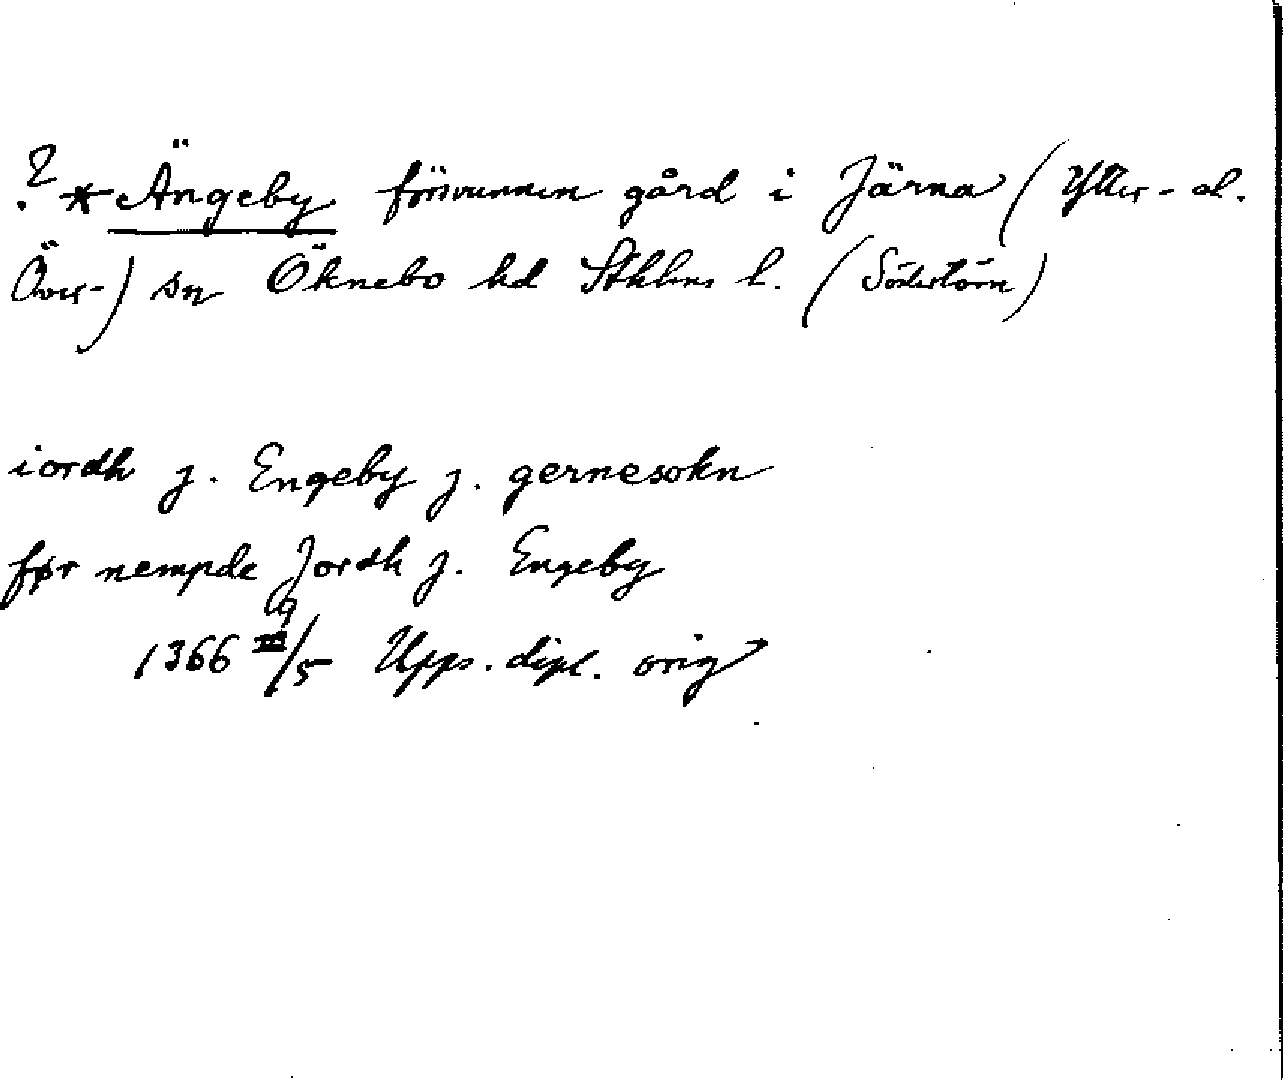 ? *Ängeby försvunnen gård i Järna (Ytter- el.
Över-) sn Öknebo hd Sthlms l. (Södertörn)
iordh j. Engeby j. gernesokn
før nempde Jordh j. Engeby
1366 9/5 Upps. dipl. orig